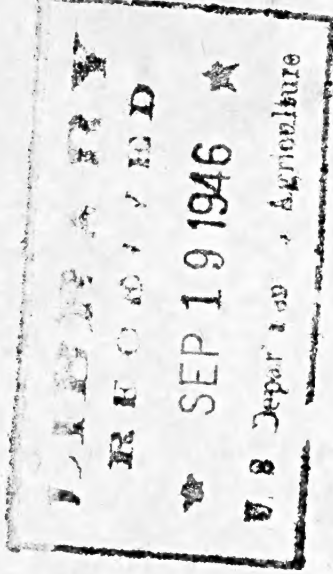 LIBRARY
RECEIVED
★ SEP 19 1946 ★
U. S. Department of Agriculture